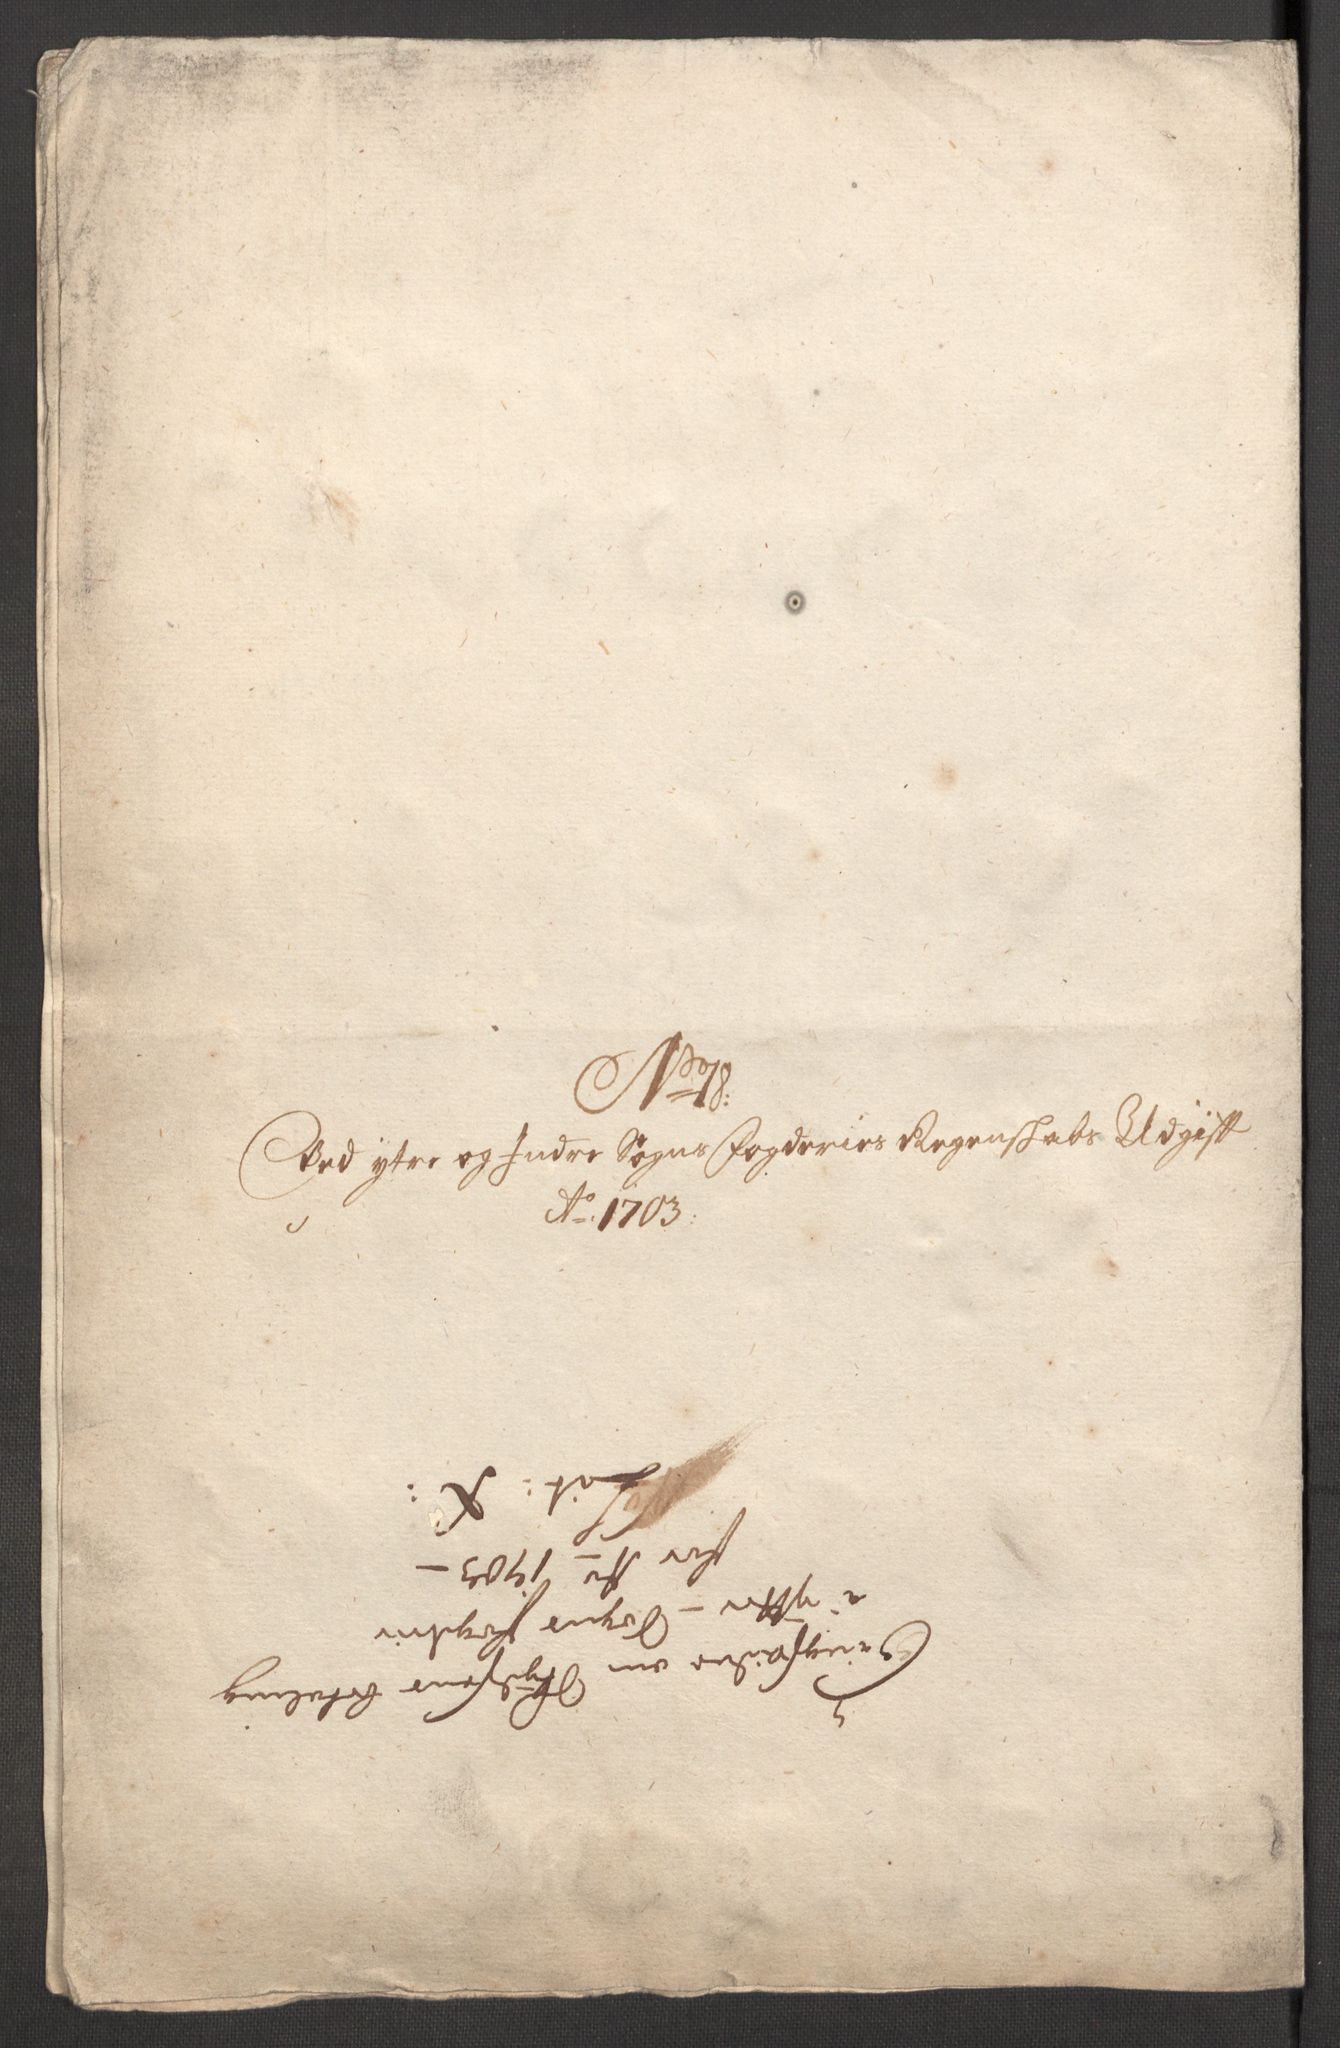 No 18:
Ved ytre og Indre Sogns Fogderies Regenskabs Udgift
Ao. 1703:
om Skydsens betaling
i Ytter – Sogns fogderie
for Ao 1703 –
Lit: X: